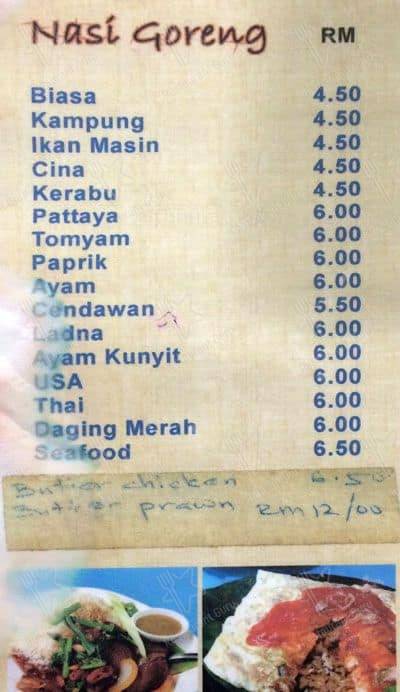 Nasi Goreng RM
Biasa 4.50
Kampung 4.50
Ikan Masin 4.50
Cina 4.50
Kerabu 4.50
Pattaya 6.00
Tomyam 6.00
Paprik 6.00
Ayam 6.00
Cendawan 5.50
Ladna 6.00
Ayam Kunyit 6.00
USA 6.00
Thai 6.00
Daging Merah 6.00
Seafood 6.50
Butter chicken 6.50
Butter prawn RM 12/00